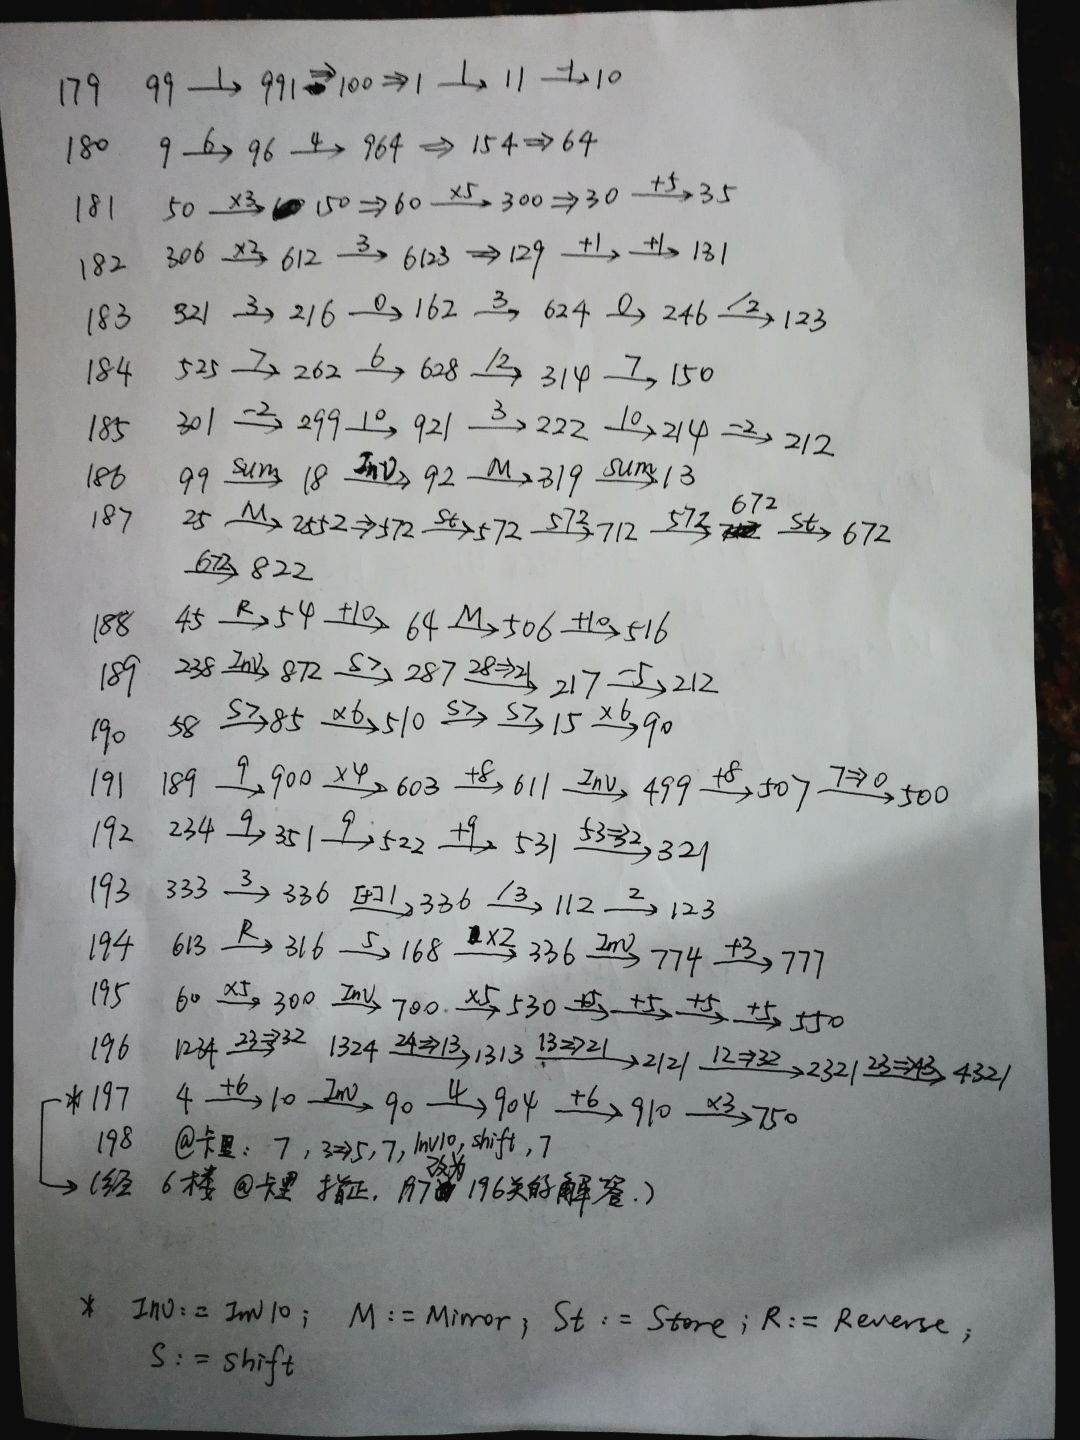 179 99 —1→ 991 ⇒ 100 ⇒ 1 —1→ 11 —-1→ 10
180 9 —6→ 96 —4→ 964 ⇒ 154 ⇒ 64
181 50 —×3→ 150 ⇒ 60 —×5→ 300 ⇒ 30 —+5→ 35
182 306 —×2→ 612 —3→ 6123 ⇒ 129 —+1→ —+1→ 131
183 321 —3→ 216 —0→ 162 —3→ 624 —0→ 246 —/2→ 123
184 525 —7→ 262 —6→ 628 —/2→ 314 —7→ 150
185 301 —-2→ 299 —10→ 921 —3→ 222 —10→ 214 —-2→ 212
186 99 —sum→ 18 —Inv→ 92 —M→ 319 —sum→ 13
187 25 —M→ 2552 ⇒ 572 —St→ 572 —572→ 712 —572→ 672 —St→ 672
—672→ 822
188 45 —R→ 54 —+10→ 64 —M→ 506 —+10→ 516
189 238 —Inv→ 872 —S>→ 287 —28⇒21→ 217 —-5→ 212
190 58 —S>→ 85 —×6→ 510 —S>→ —S>→ 15 —×6→ 90
191 189 —9→ 900 —×4→ 603 —+8→ 611 —Inv→ 499 —+8→ 507 —7⇒0→ 500
192 234 —9→ 351 —9→ 522 —+9→ 531 —53⇒32→ 321
193 333 —3→ 336 —[+]1→ 336 —/3→ 112 —2→ 123
194 613 —R→ 316 —5→ 168 —×2→ 336 —Inv→ 774 —+3→ 777
195 60 —×5→ 300 —Inv→ 700 —×5→ 530 —+5→ —+5→ —+5→ —+5→ 550
196 1234 —23⇒32→ 1324 —24⇒13→ 1313 —13⇒21→ 2121 —12⇒32→ 2321 —23⇒43→ 4321
* 197 4 —+6→ 10 —Inv→ 90 —4→ 904 —+6→ 910 —×3→ 750
198 @卡里: 7, 3⇒5, 7, Inv10, shift, 7
(经 6楼 @卡里 指正, 197改为 196关的解答.)
* Inv:= Inv10; M:= Mirror; St:= Store; R:= Reverse;
S:= shift